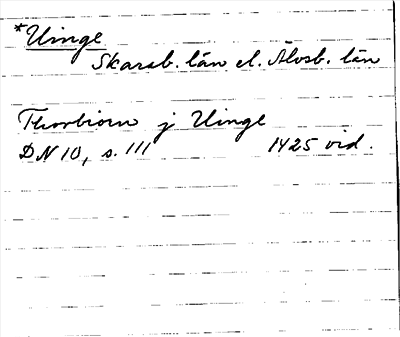 *Uinge
Skarab. län el. Älvsb. län
Thorbiorn j Uinge
DN 10, s. 111 1425 vid.